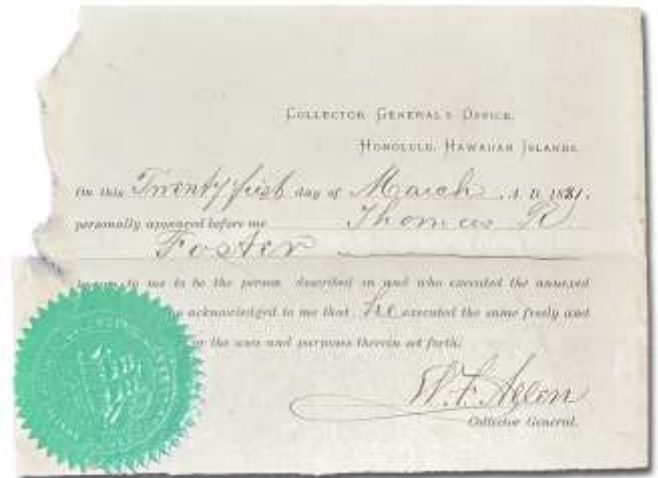 COLLECTOR GENERAL'S OFFICE.
HONOLULU, HAWAIIAN ISLANDS
On this Twenty first day of March, A. D. 1881,
personally appeared before me Thomas R
Foster
to me to be the person described in and who executed the annexed
acknowledged to me that he executed the same freely and
for the uses and purposes therein set forth.
W. F. Allen
Collector General.